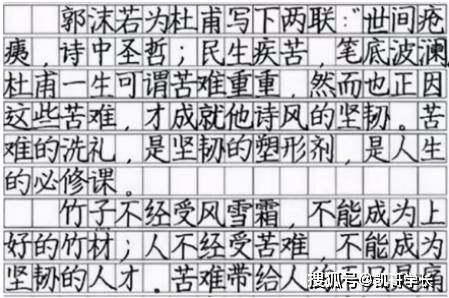 郭沫若为杜甫写下两联："世间疮
痍，诗中圣哲；民生疾苦，笔底波澜
杜甫一生可谓苦难重重，然而也正因
这些苦难，才成就他诗风的坚韧。苦
难的洗礼，是坚韧的塑形剂，是人生
的必修课。
竹子不经受风雪霜，不能成为上
好的竹材；人不经受苦难 不能成为
坚韧的人才。苦难带给人的
痛
搜狐号@凯哥学长